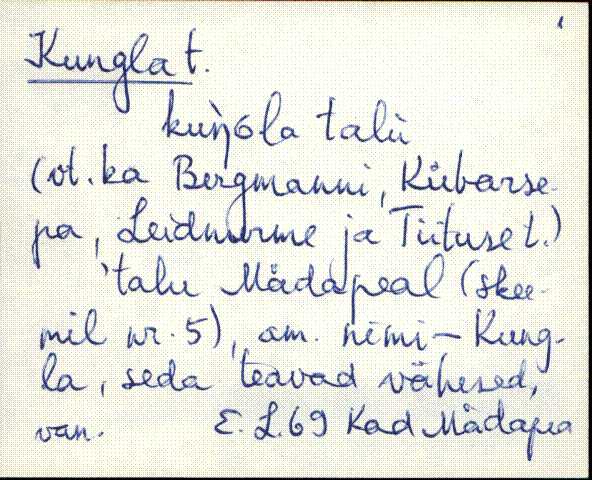 Kungla t.
kuŋ̀ola talu
(vt. ka Bergmanni, Kübarse-
pa, Leidnurme ja Tiituse t.)
'talu Mädapeal (skee-
mil nr. 5), am. nimi – Kung-
la, seda teavad vähesed,
van. E. L. 69 Kad Mädapea